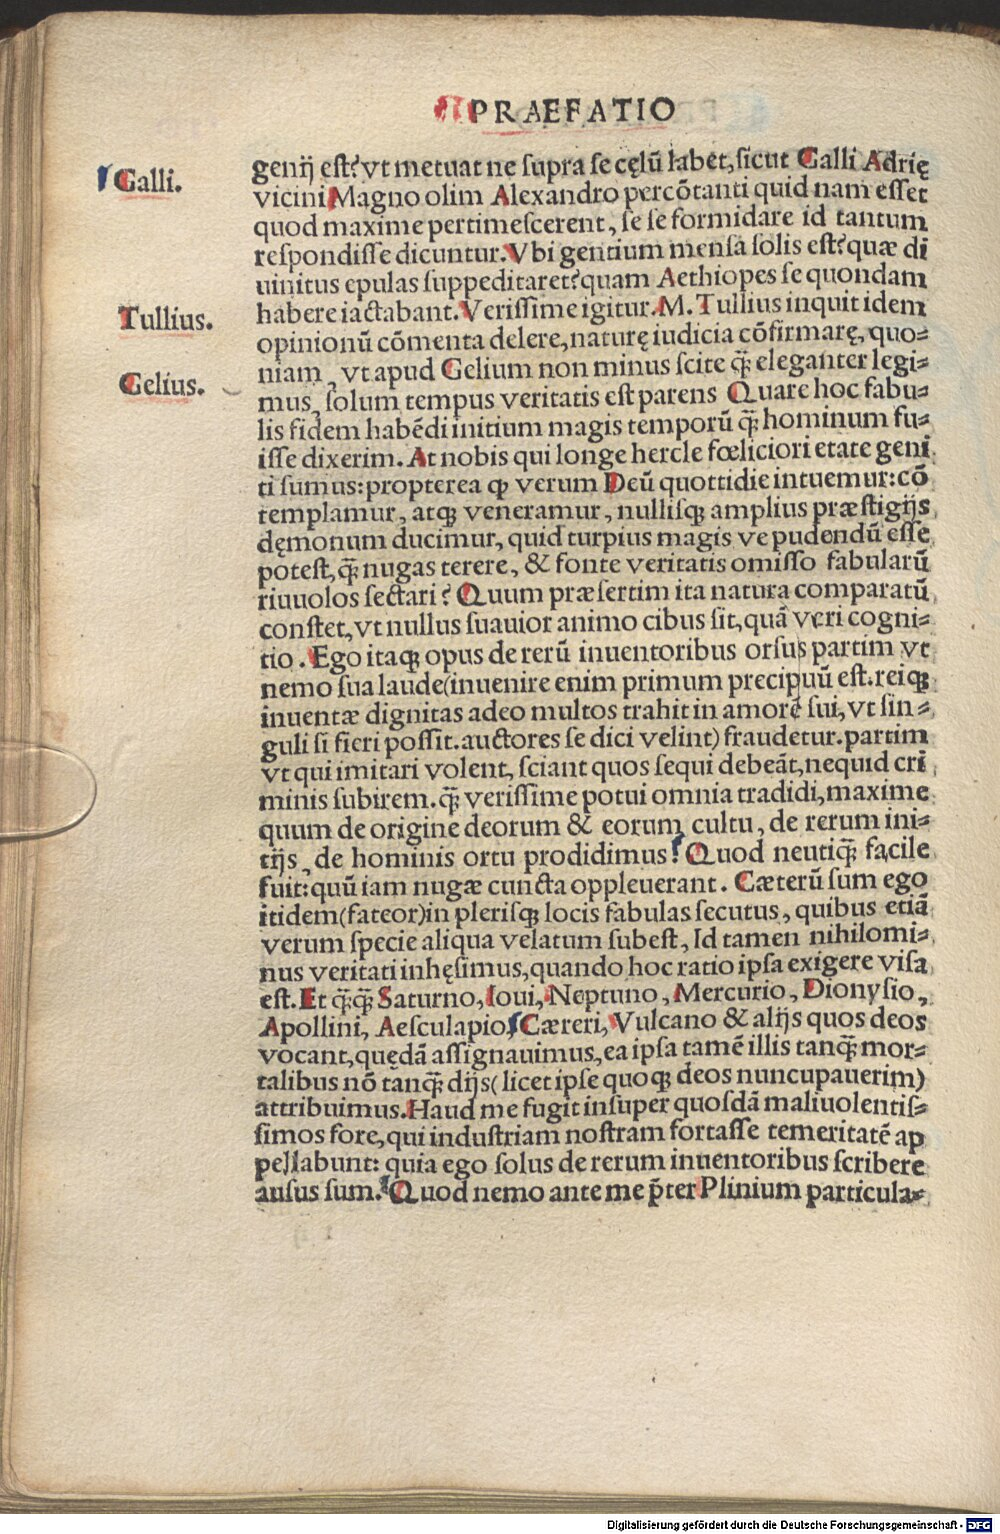 PRAEFATIO
Galli.
Tullius.
Gelius.
genij est? vt metuat ne supra se cęlū labet, sicut Galli Adrię
vicini Magno olim Alexandro percōtanti quid nam esset
quod maxime pertimescerent, se se formidare id tantum
respondisse dicuntur. Vbi gentium mensa solis est? quæ di
uinitus epulas suppeditaret? quam Aethiopes se quondam
habere iactabant. Verissime igitur. M. Tullius inquit idem
opinionū cōmenta delere, naturę iudicia cōfirmarę, quo=
niam, vt apud Gelium non minus scite q̄ eleganter legi=
mus, solum tempus veritatis est parens Quare hoc fabu=
lis fidem habēdi initium magis temporū q̄ hominum fu=
isse dixerim. At nobis qui longe hercle fœliciori etate geni
ti sumus: propterea ꝙ verum Deū quottidie intuemur: cō
templamur, atqꝫ veneramur, nullisqꝫ amplius præstigijs
dęmonum ducimur, quid turpius magis ve pudendū esse
potest, q̄ nugas terere, & fonte veritatis omisso fabularū
riuuolos sectari? Quum præsertim ita natura comparatū
constet, vt nullus suauior animo cibus sit, quā veri cogni=
tio. Ego itaqꝫ opus de rerū inuentoribus orsus partim vt
nemo sua laude (inuenire enim primum precipuū est. reiqꝫ
inuentæ dignitas adeo multos trahit in amorē sui, vt sin=
guli si fieri possit. auctores se dici velint) fraudetur. partim
vt qui imitari volent, sciant quos sequi debeāt, nequid cri
minis subirem. q̄ verissime potui omnia tradidi, maxime
quum de origine deorum & eorum cultu, de rerum ini=
tijs, de hominis ortu prodidimus? Quod neutiq̄ facile
fuit: quū iam nugæ cuncta oppleuerant. Cæterū sum ego
itidem (fateor) in plerisqꝫ locis fabulas secutus, quibus etiā
verum specie aliqua velatum subest, Id tamen nihilomi=
nus veritati inhęsimus, quando hoc ratio ipsa exigere visa
est. Et q̄q̄ Saturno, Ioui, Neptuno, Mercurio, Dionysio,
Apollini, Aesculapio, Cæreri, Vulcano & alijs quos deos
vocant, quędā assignauimus, ea ipsa tamē illis tanq̄ mor=
talibus nō tanq̄ dijs (licet ipse quoqꝫ deos nuncupauerim)
attribuimus. Haud me fugit insuper quosdā maliuolentis=
simos fore, qui industriam nostram fortasse temeritatē ap
pellabunt: quia ego solus de rerum inuentoribus scribere
ausus sum. Quod nemo ante me p̄ter Plinium particula=
Digitalisierung gefördert durch die Deutsche Forschungsgemeinschaft - DFG